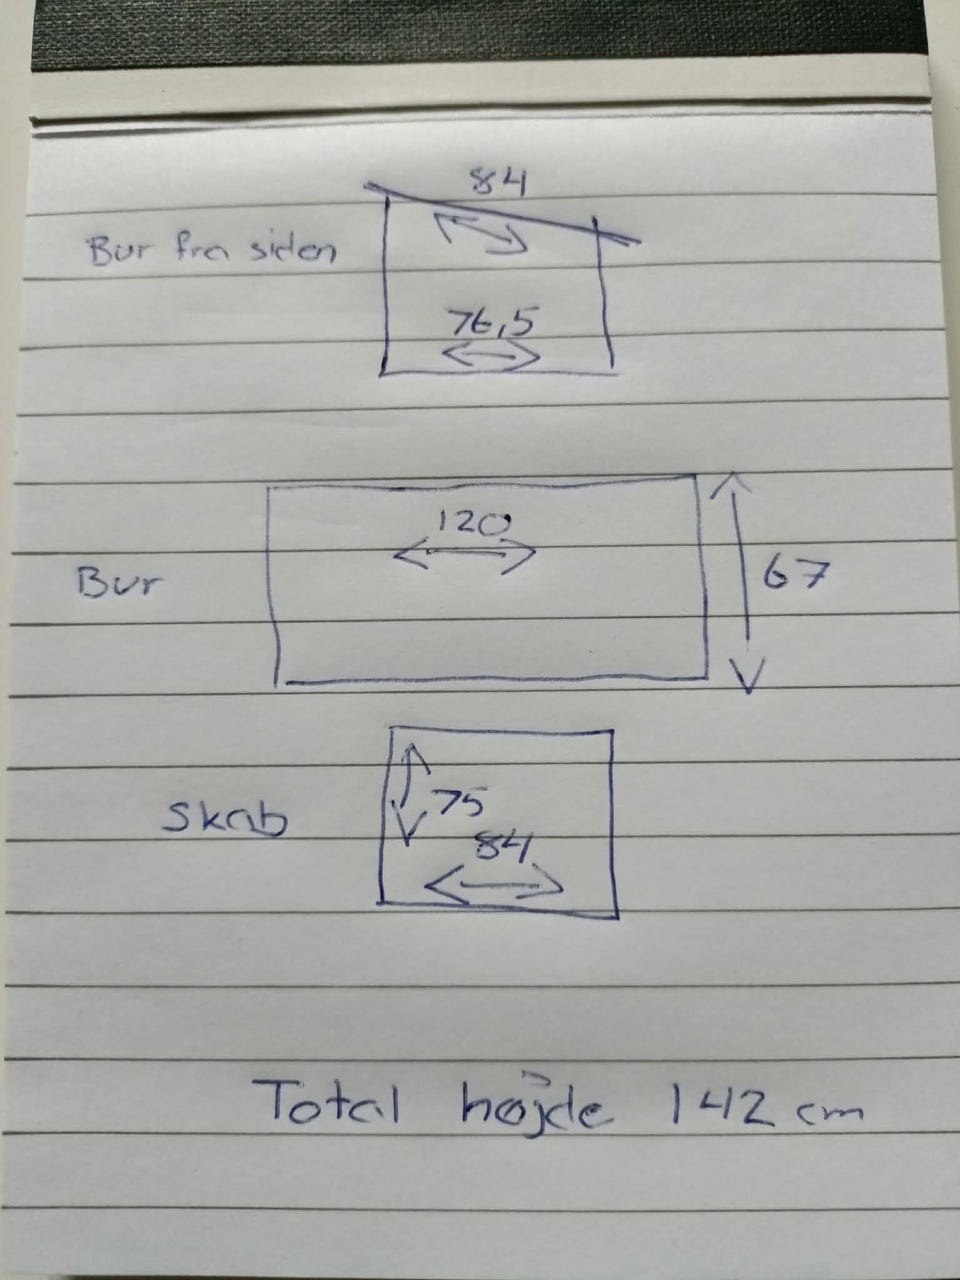 84
Bur fra siden
76,5
120
Bur
67
Skab
75
84
Total højde 142 cm